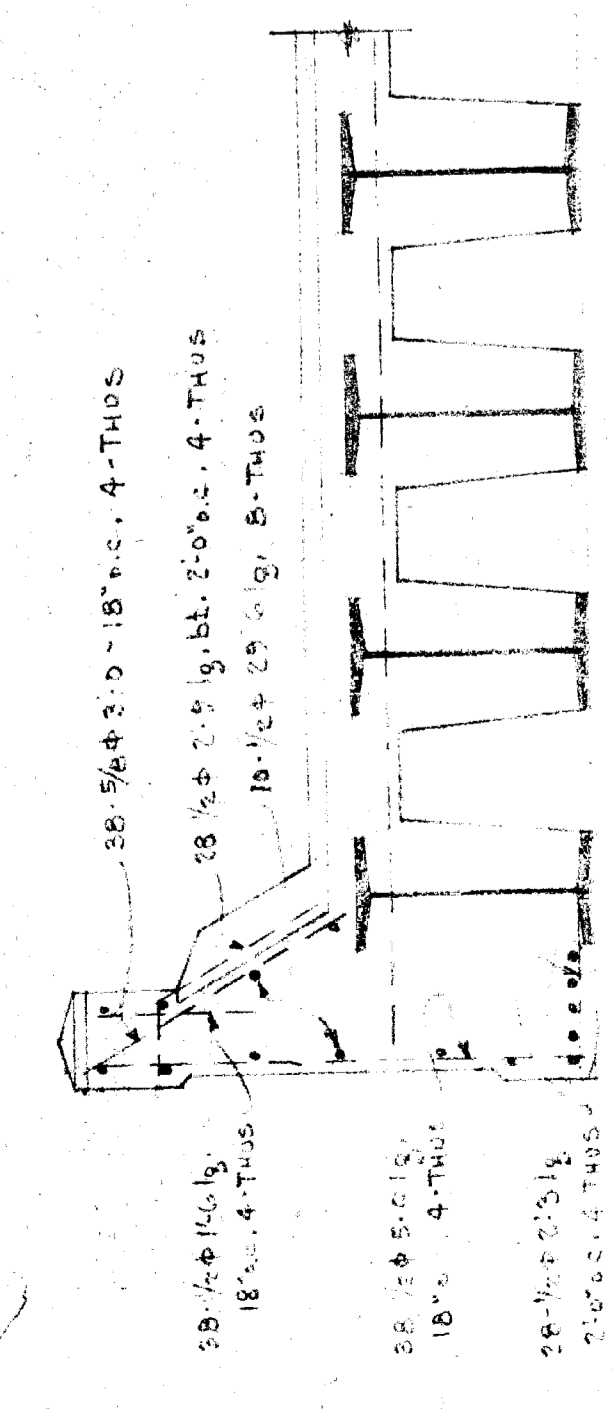 38-5/8 ϕ 3'-0 - 18" o.c. 4-THUS
28 1/2 ϕ 2'-9 lg, bt. 2'-0" o.c. 4-THUS
10-1/2 ϕ 29'-6 lg, 8-THUS
38-1/2 ϕ 1'-6 lg,
18" o.c. 4-THUS
38 1/2 ϕ 5'-6 lg,
18" o.c. 4-THUS
28-1/2 ϕ 2'-3 lg
2'-0" o.c. 4 THUS